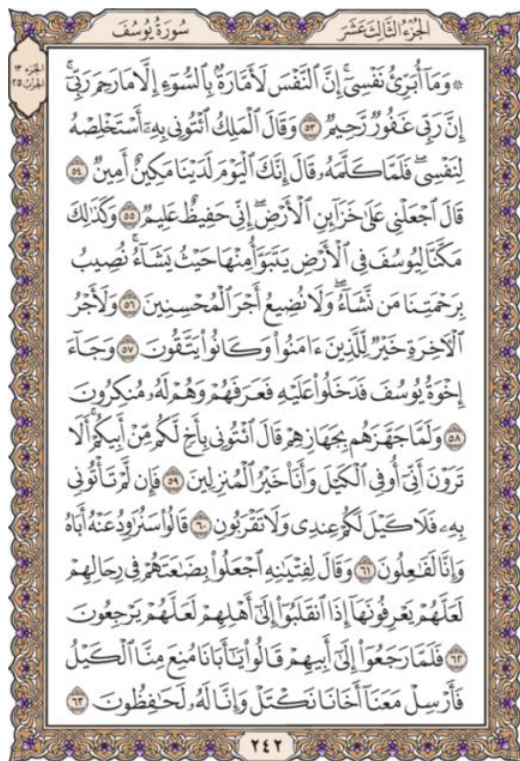 الجزء الثالث عشر
سورة يوسف
الجزء ١٣
الحزب ٢٥
۞ وَمَآ أُبَرِّئُ نَفْسِيٓۚ إِنَّ ٱلنَّفْسَ لَأَمَّارَةُۢ بِٱلسُّوٓءِ إِلَّا مَا رَحِمَ رَبِّيٓۚ
إِنَّ رَبِّي غَفُورٌ رَّحِيمٌ ٥٣ وَقَالَ ٱلْمَلِكُ ٱئْتُونِي بِهِۦٓ أَسْتَخْلِصْهُ
لِنَفْسِيۖ فَلَمَّا كَلَّمَهُۥ قَالَ إِنَّكَ ٱلْيَوْمَ لَدَيْنَا مَكِينٌ أَمِينٌ ٥٤
قَالَ ٱجْعَلْنِي عَلَىٰ خَزَآئِنِ ٱلْأَرْضِۖ إِنِّي حَفِيظٌ عَلِيمٌ ٥٥ وَكَذَٰلِكَ
مَكَّنَّا لِيُوسُفَ فِي ٱلْأَرْضِ يَتَبَوَّأُ مِنْهَا حَيْثُ يَشَآءُۚ نُصِيبُ
بِرَحْمَتِنَا مَن نَّشَآءُۖ وَلَا نُضِيعُ أَجْرَ ٱلْمُحْسِنِينَ ٥٦ وَلَأَجْرُ
ٱلْأٓخِرَةِ خَيْرٌ لِّلَّذِينَ ءَامَنُوا۟ وَكَانُوا۟ يَتَّقُونَ ٥٧ وَجَآءَ
إِخْوَةُ يُوسُفَ فَدَخَلُوا۟ عَلَيْهِ فَعَرَفَهُمْ وَهُمْ لَهُۥ مُنكِرُونَ
٥٨ وَلَمَّا جَهَّزَهُم بِجَهَازِهِمْ قَالَ ٱئْتُونِي بِأَخٍ لَّكُم مِّنْ أَبِيكُمْۚ أَلَا
تَرَوْنَ أَنِّيٓ أُوفِي ٱلْكَيْلَ وَأَنَا۠ خَيْرُ ٱلْمُنزِلِينَ ٥٩ فَإِن لَّمْ تَأْتُونِي
بِهِۦ فَلَا كَيْلَ لَكُمْ عِندِي وَلَا تَقْرَبُونِ ٦٠ قَالُوا۟ سَنُرَٰوِدُ عَنْهُ أَبَاهُ
وَإِنَّا لَفَٰعِلُونَ ٦١ وَقَالَ لِفِتْيَٰنِهِ ٱجْعَلُوا۟ بِضَٰعَتَهُمْ فِي رِحَالِهِمْ
لَعَلَّهُمْ يَعْرِفُونَهَآ إِذَا ٱنقَلَبُوٓا۟ إِلَىٰٓ أَهْلِهِمْ لَعَلَّهُمْ يَرْجِعُونَ
٦٢ فَلَمَّا رَجَعُوٓا۟ إِلَىٰٓ أَبِيهِمْ قَالُوا۟ يَٰٓأَبَانَا مُنِعَ مِنَّا ٱلْكَيْلُ
فَأَرْسِلْ مَعَنَآ أَخَانَا نَكْتَلْ وَإِنَّا لَهُۥ لَحَٰفِظُونَ ٦٣
٢٤٢